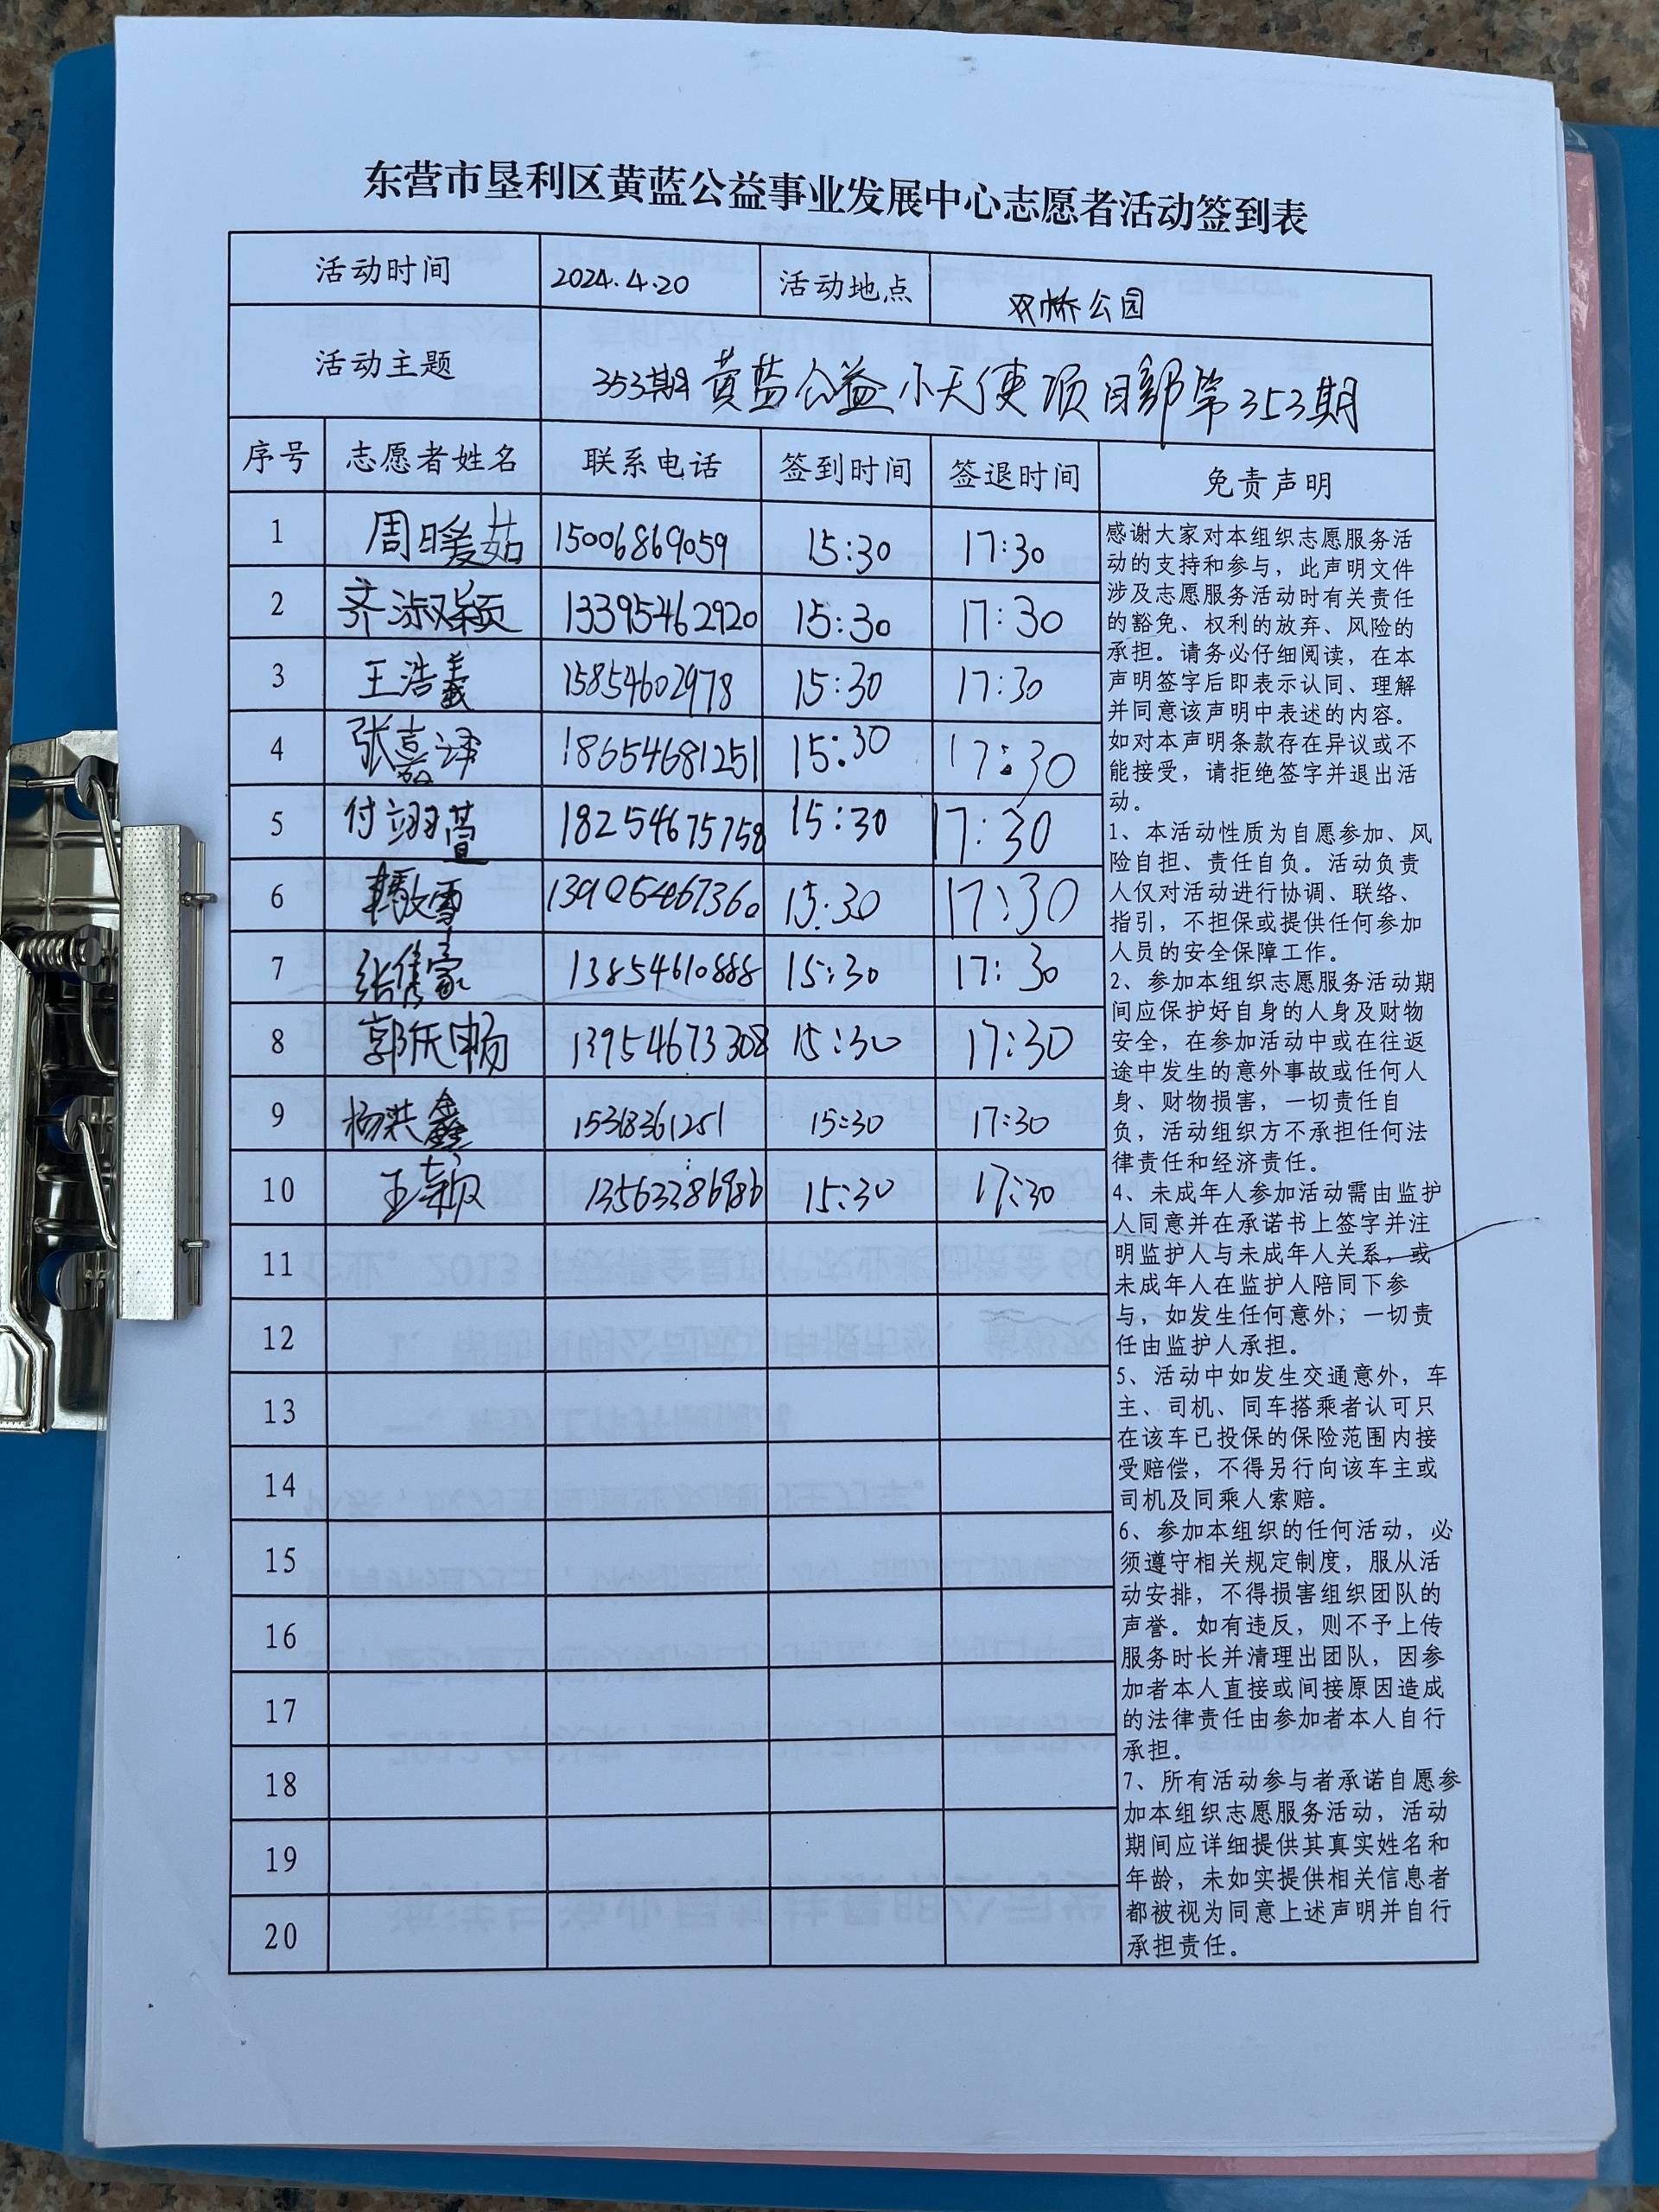 东营市垦利区黄蓝公益事业发展中心志愿者活动签到表
活动时间 2024.4.20 活动地点 双桥公园
活动主题 353期黄蓝公益小天使项目部第353期
序号 志愿者姓名 联系电话 签到时间 签退时间 免责声明
1 周暖茹 15006869059 15:30 17:30
2 齐淑颖 13395462920 15:30 17:30
3 王浩羲 15854602978 15:30 17:30
4 张嘉译 18654681251 15:30 17:30
5 付翊萱 18254675758 15:30 17:30
6 15:30 17:30
7 张隽豪 13854610888 15:30 17:30
8 13954673308 15:30 17:30
9 杨洪鑫 15318361251 15:30 17:30
10 王颖 15:30 17:30
11
12
13
14
15
16
17
18
19
20
感谢大家对本组织志愿服务活
动的支持和参与，此声明文件
涉及志愿服务活动时有关责任
的豁免、权利的放弃、风险的
承担。请务必仔细阅读，在本
声明签字后即表示认同、理解
并同意该声明中表述的内容。
如对本声明条款存在异议或不
能接受，请拒绝签字并退出活
动。
1、本活动性质为自愿参加、风
险自担、责任自负。活动负责
人仅对活动进行协调、联络、
指引，不担保或提供任何参加
人员的安全保障工作。
2、参加本组织志愿服务活动期
间应保护好自身的人身及财物
安全，在参加活动中或在往返
途中发生的意外事故或任何人
身、财物损害，一切责任自
负，活动组织方不承担任何法
律责任和经济责任。
4、未成年人参加活动需由监护
人同意并在承诺书上签字并注
明监护人与未成年人关系，或
未成年人在监护人陪同下参
与，如发生任何意外；一切责
任由监护人承担。
5、活动中如发生交通意外，车
主、司机、同车搭乘者认可只
在该车已投保的保险范围内接
受赔偿，不得另行向该车主或
司机及同乘人索赔。
6、参加本组织的任何活动，必
须遵守相关规定制度，服从活
动安排，不得损害组织团队的
声誉。如有违反，则不予上传
服务时长并清理出团队，因参
加者本人直接或间接原因造成
的法律责任由参加者本人自行
承担。
7、所有活动参与者承诺自愿参
加本组织志愿服务活动，活动
期间应详细提供其真实姓名和
年龄，未如实提供相关信息者
都被视为同意上述声明并自行
承担责任。